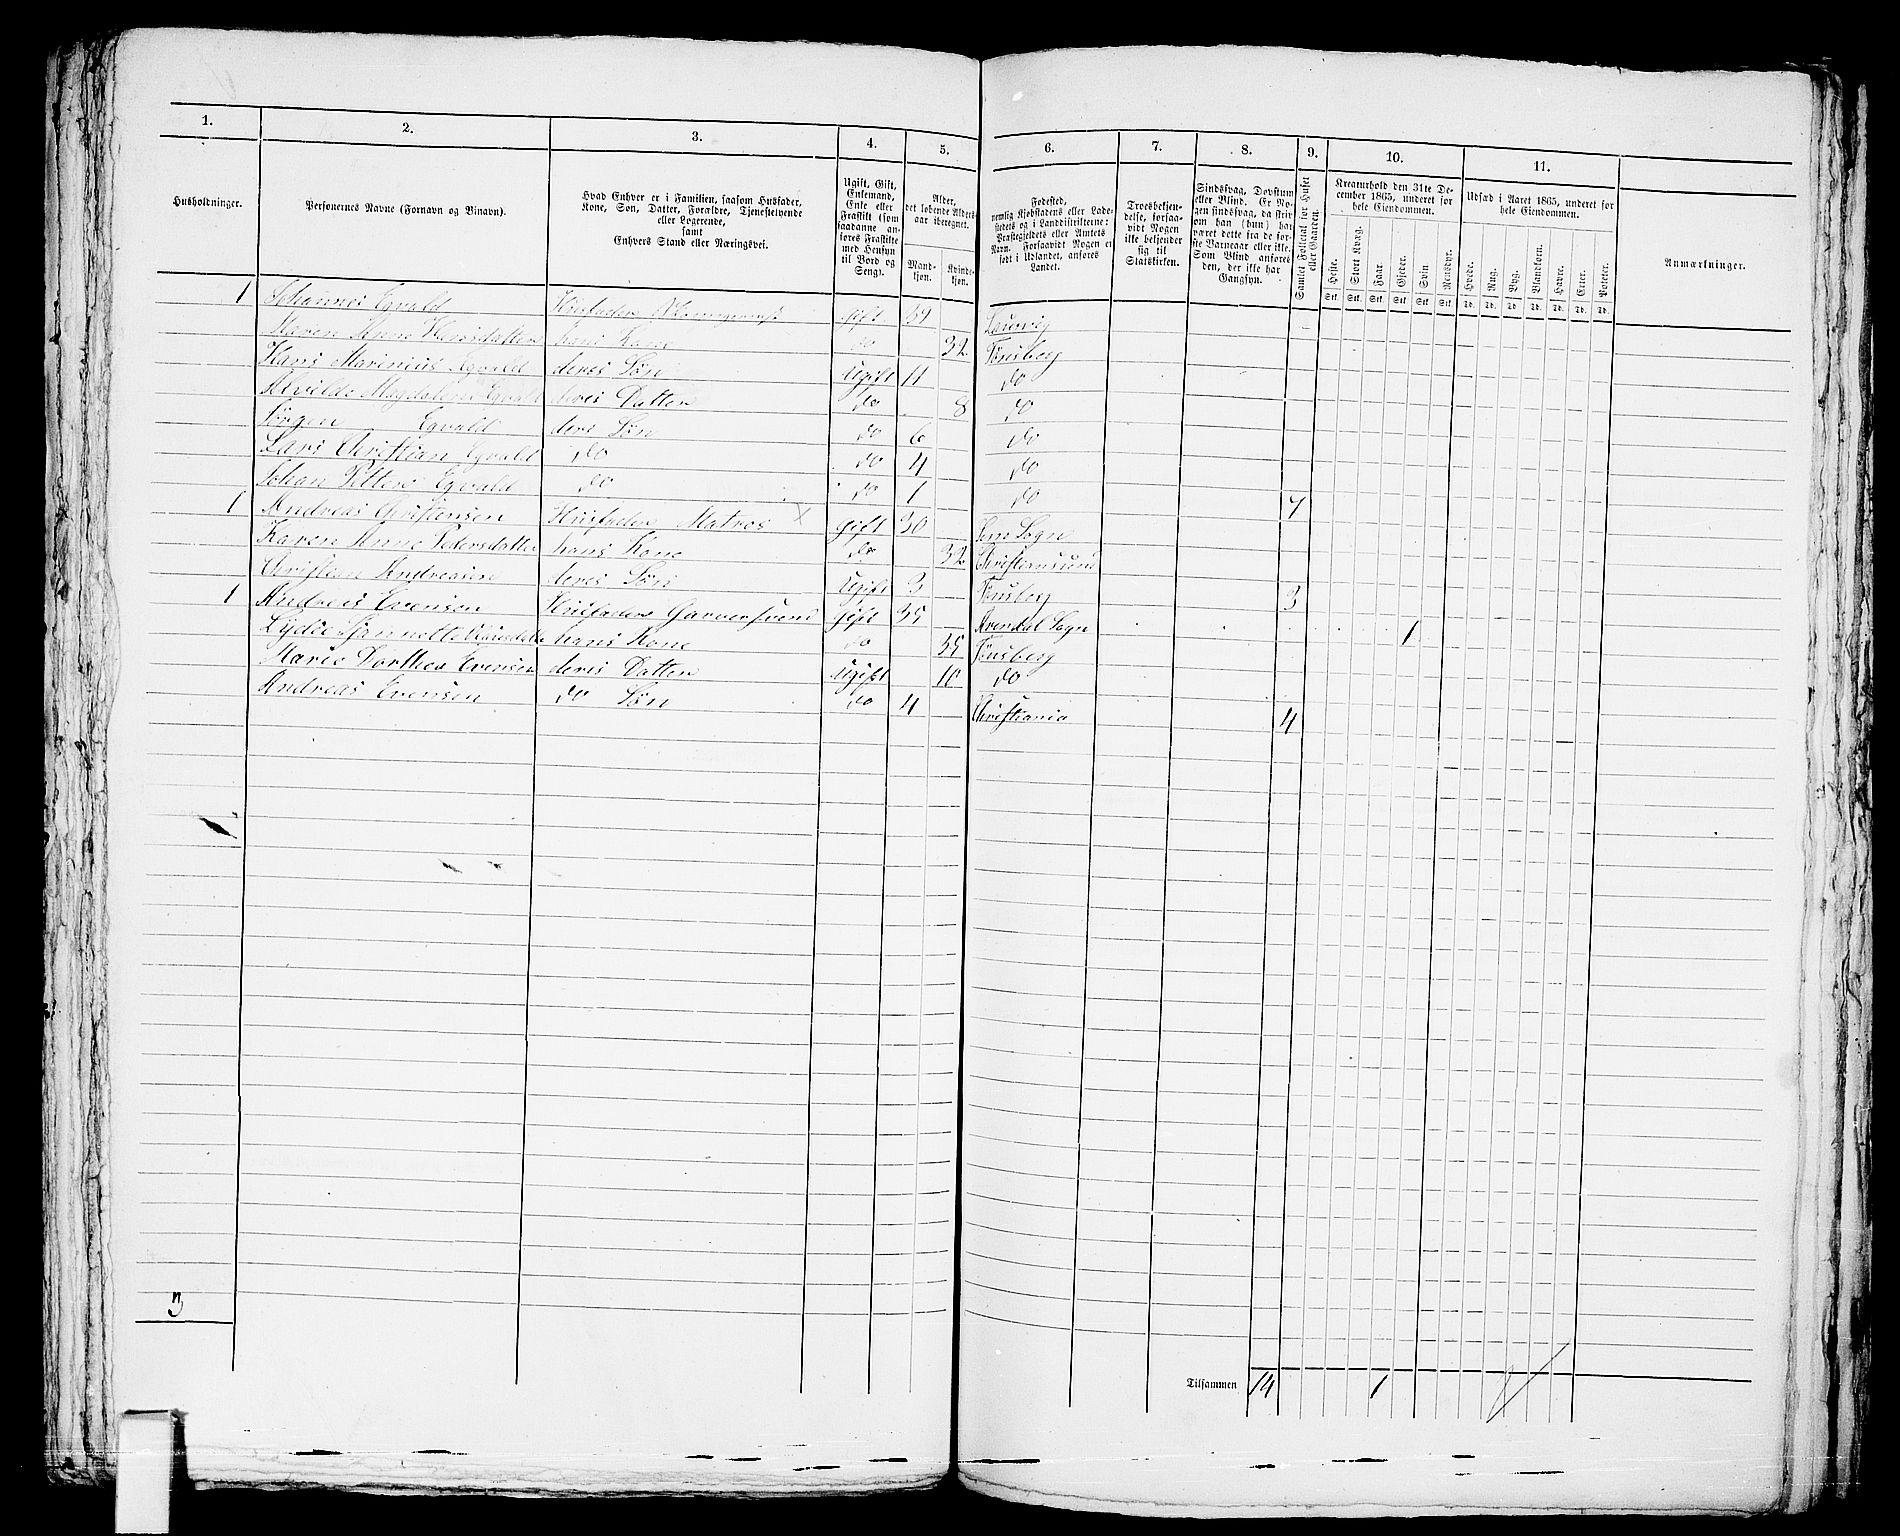 1. 2. 3. 4. 5. 6. 7. 8. 9. 10. 11.
Husholdninger.
Personernes Navne (Fornavn og Binavn).
Hvad Enhver er i Familien, saasom Husfader,
Kone, Søn, Datter, Forældre, Tjenestetyende
eller Logerende,
samt
Enhvers Stand eller Næringsvei.
Ugift, Gift,
Enkemand,
Enke eller
Fraskilt (som
saadanne an-
føres Fraskilte
med Hensyn
til Bord og
Seng).
Alder,
det løbende Alders-
aar iberegnet.
Mand-
kjøn.
Kvinde-
kjøn.
Fødested,
nemlig Kjøbstadens eller Lade-
stedets og i Landdistrikterne:
Præstegjeldets eller Amtets
Navn. Forsaavidt Nogen er
født i Udlandet, anføres
Landet.
Troesbekjen-
delse, forsaa-
vidt Nogen
ikke bekjender
sig til
Statskirken.
Sindssvag, Døvstum
eller Blind. Er No-
gen sindssvag, da skriv
om han (hun) har
været dette fra de før-
ste Barneaar eller ikke.
Som Blind anføres
den, der ikke har
Gangsyn.
Samlet Folketal for Huset
eller Gaarden.
Kreaturhold den 31te De-
cember 1865, underet for
hele Eiendommen.
Heste. Stort Kvæg. Faar. Gjeder. Svin Rensdyr.
Stk. Stk. Stk. Stk. Stk. Stk.
Udsæd i Aaret 1865, underet for
hele Eiendommen.
Hvede. Rug. Byg. Blandkorn. Havre. Erter. Poteter.
Td. Td. Td. Td. Td. Td. Td.
Anmærkninger.
1 Johannes Egvald Husfader gift 59 Laurvig
Maren Anne Hansdatter hans Kone do 32 Tønsberg
Hans Marinius Egvald deres Søn Ugift 11 do
Alvilde Magdalene Egvald deres Datter do 8 do
Jørgen Egvald deres Søn do 6 do
Lars Christian Egvald do do 4 do
Johan Petter Egvald do do 1 do 7
1 Andreas Christensen Husfader Matros X gift 30 Sem Sogn
Karen Anne Pedersdatter hans Kone do 32 Christiansund
Christian Andreasen deres Søn Ugift 3 Tønsberg 3
1 Andreas Evensen Husfader Garversvend gift 35 Arendal Sogn 1
hans Kone do 35 Tønsberg
Marie Dorthea Evensen deres Datter Ugift 10 do
Andreas Evensen do Søn do 4 Christiania 4
3
Tilsammen 14 1